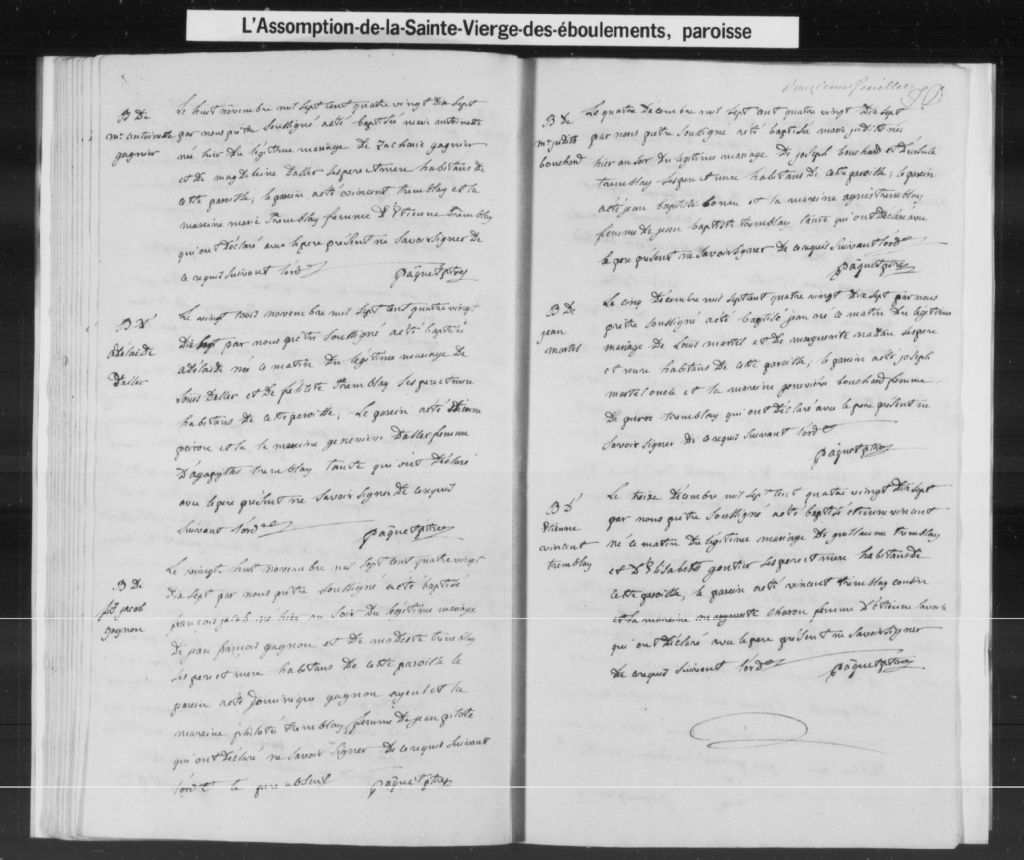 L'Assomption-de-la-Sainte-Vierge-des-éboulements, paroisse
B De
m^e antoinette
gagnier
Le huit novembre mil sept cent quatre vingt dix sept
par nous prêtre soussigné a été baptisée marie antoinette
née hier du légitime mariage de Zacharie gagnier
et de magdeleine Daller ses pere et mere habitans de
cette paroisse; le parein a été vincent tremblay et la
mareine marie tremblay femme d'Etienne tremblay
qui ont déclaré avec le pere présent ne savoir signer de
ce requis suivant l'ord^ce
pâquet ptre
B D'
adelaide
Daller
Le vingt trois novembre mil sept cent quatre vingt
dix sept par nous prêtre soussigné a été baptisée
adelaide née ce matin du légitime mariage de
Louis Daller et de félicité tremblay ses pere et mere
habitans de cette paroisse; Le parein a été Etienne
peiron et la mareine genevieve Daller femme
D'agapythe tremblay tante qui ont déclaré
avec le pere présent ne savoir signer de ce requis
suivant l'ord^ce
pâquet ptre
B De
fr. jacob
gagnon
Le vingt huit novembre mil sept cent quatre vingt
dix sept par nous prêtre soussigné a été baptisé
françois jacob né hier au soir du légitime mariage
de jean françois gagnon et de modeste tremblay
ses pere et mere habitans de cette paroisse le
parein a été Dominique gagnon ayeul et la
mareine philotée tremblay femme de jean pilote
qui ont déclaré ne savoir signer de ce requis suivant
l'ord^ce le pere absent
pâquet ptre
feuillet
B De
m^e judith
bouchard
Le quatre décembre mil sept cent quatre vingt dix sept
par nous prêtre soussigné a été baptisée marie judith née
hier au soir du légitime mariage de joseph bouchard et d'ursule
tremblay ses pere et mere habitans de cette paroisse; le parein
a été jean baptiste bonau et la mareine agnes tremblay
femme de jean baptiste tremblay tante qui ont déclaré avec
le pere présent ne savoir signer de ce requis suivant l'ord^ce
pâquet ptre
B De
jean
martel
Le cinq décembre mil sept cent quatre vingt dix sept par nous
prêtre soussigné a été baptisé jean né ce matin du légitime
mariage de Louis martel et de marguerite nadau ses pere
et mere habitans de cette paroisse; le parein a été joseph
martel oncle et la mareine genevieve bouchard femme
de pierre tremblay qui ont déclaré avec le pere présent ne
savoir signer de ce requis suivant l'ord^ce
pâquet ptre
B D'
Etienne
vincent
tremblay
Le treize décembre mil sept cent quatre vingt dix sept
par nous prêtre soussigné a été baptisé etienne vincent
né ce matin du légitime mariage de guillaume tremblay
et d'Elisabeth gontier ses pere et mere habitans de
cette paroisse, le parein a été vincent tremblay cousin
et la mareine marguerite charon femme d'étienne
qui ont déclaré avec le pere présent ne savoir signer
de ce requis suivant l'ord^ce
pâquet ptre